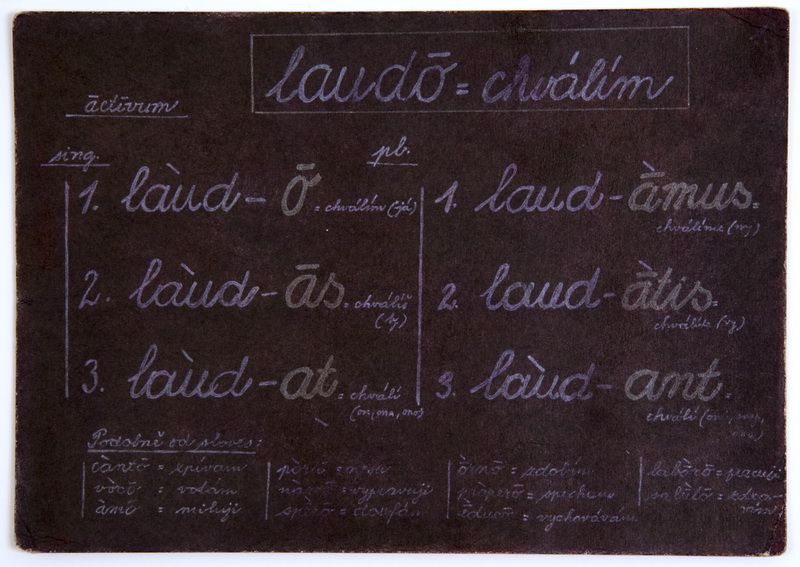 laudō = chválím
āctīvum
sing.
1. làud - ō = chválím (já)
2. làud - ās = chválíš
(ty)
3. làud - at = chválí
(on, ona, ono)
pl.
1. laud - àmus =
chválíme (my)
2. laud - àtis =
chválíte (vy)
3. làud - ant =
chválí (oni, ony,
ona)
Podobně od sloves:
càntō = zpívám
vòcō = volám
àmō = miluji
pòrtō = nesu
nàrrō = vypravuji
spèrō = doufám
òrnō = zdobím
pròperō = spěchám
èducō = vychovávám
labòrō = pracuji
salùtō = zdra-
vím